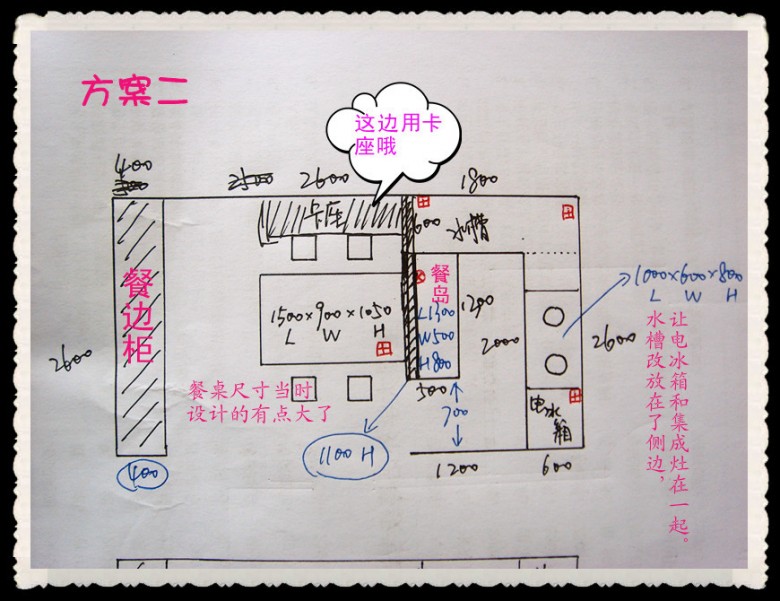 方案二
这边用卡
座哦
400
2500 2600
1800
卡座
600
水槽
餐边柜
餐岛
1500×900×1050
L W H
L1300
W500
H800
1200
2000
2600
1000×600×800
L W H
2600
餐桌尺寸当时
设计的有点大了
500
700
电冰箱
1100 H
400
1200
600
让电冰箱和集成灶在一起。
水槽改放在了侧边，